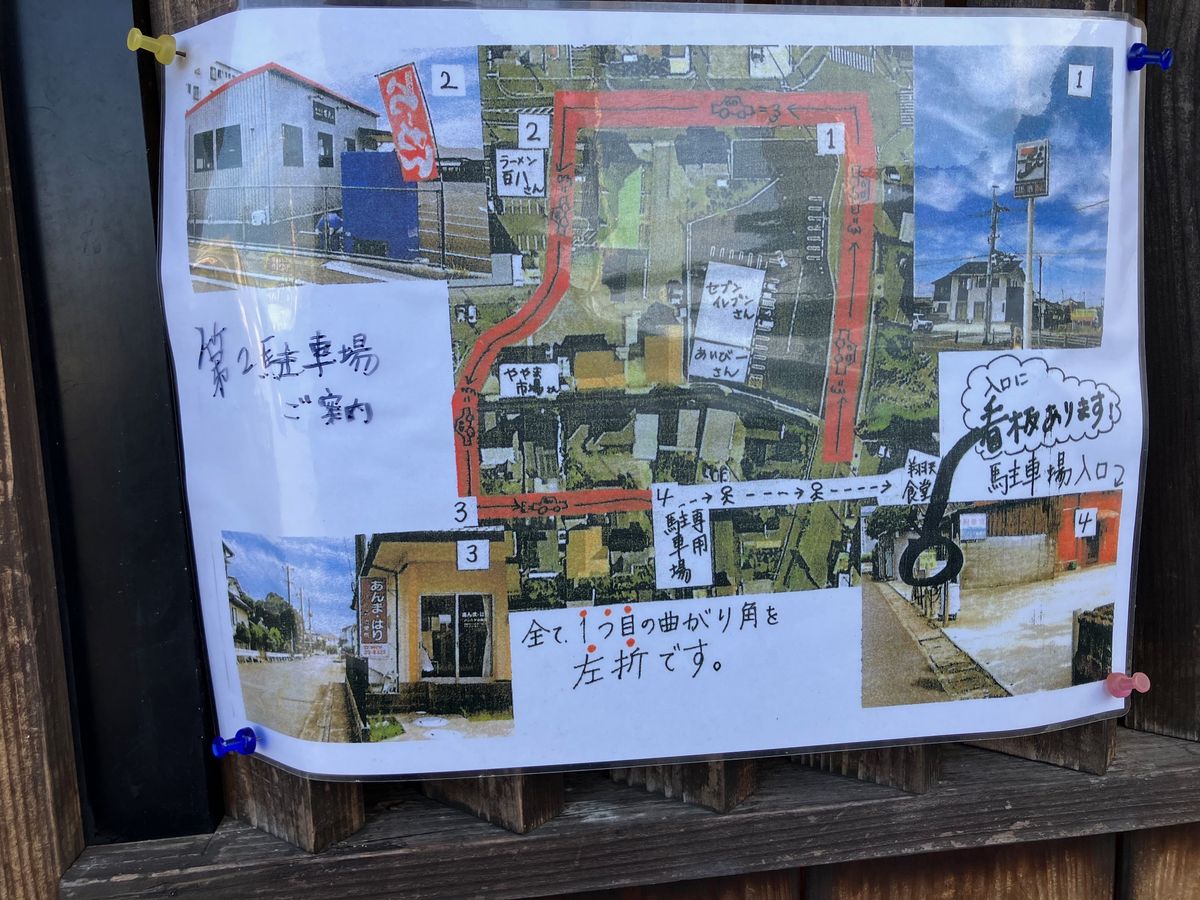 2
1
2
1
ラーメン
百八
さん
セブン
イレブン
さん
あいびー
さん
ややま
市場さん
第2駐車場
ご案内
入口に
看板あります!
駐車場入口
翔天
食堂
4
専用
駐車場
3
3
4
あんま・はり
全て、1つ目の曲がり角を
左折です。